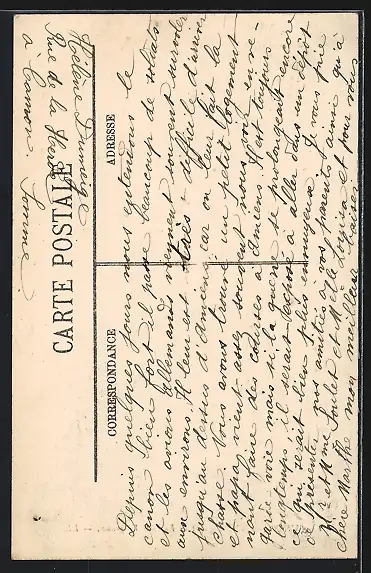 Hélène
Rue de la
à Camon Somme
CARTE POSTALE
CORRESPONDANCE
ADRESSE
Depuis quelques jours nous entendons le
canon bien fort il passe beaucoup de soldats
et les avions allemands viennent souvent survoler
aux environs. Il leur est très difficile d'arriver
jusqu'au dessus d'Amiens car on leur fait la
chasse. Nous avons trouvé un petit logement
et papa vient assez souvent nous voir en ve-
nant faire des courses à Amiens. Il est toujours
garde voie mais si la guerre se prolongeait encore
longtemps, il serait exposé à aller dans un dépôt
ce qui serait bien plus ennuyeux. Je vous prie
de présenter nos amitiés à vos parents ainsi qu'à
Mr et Mme Foulet et Melle et pour vous
chère Marthe mon meilleur baiser